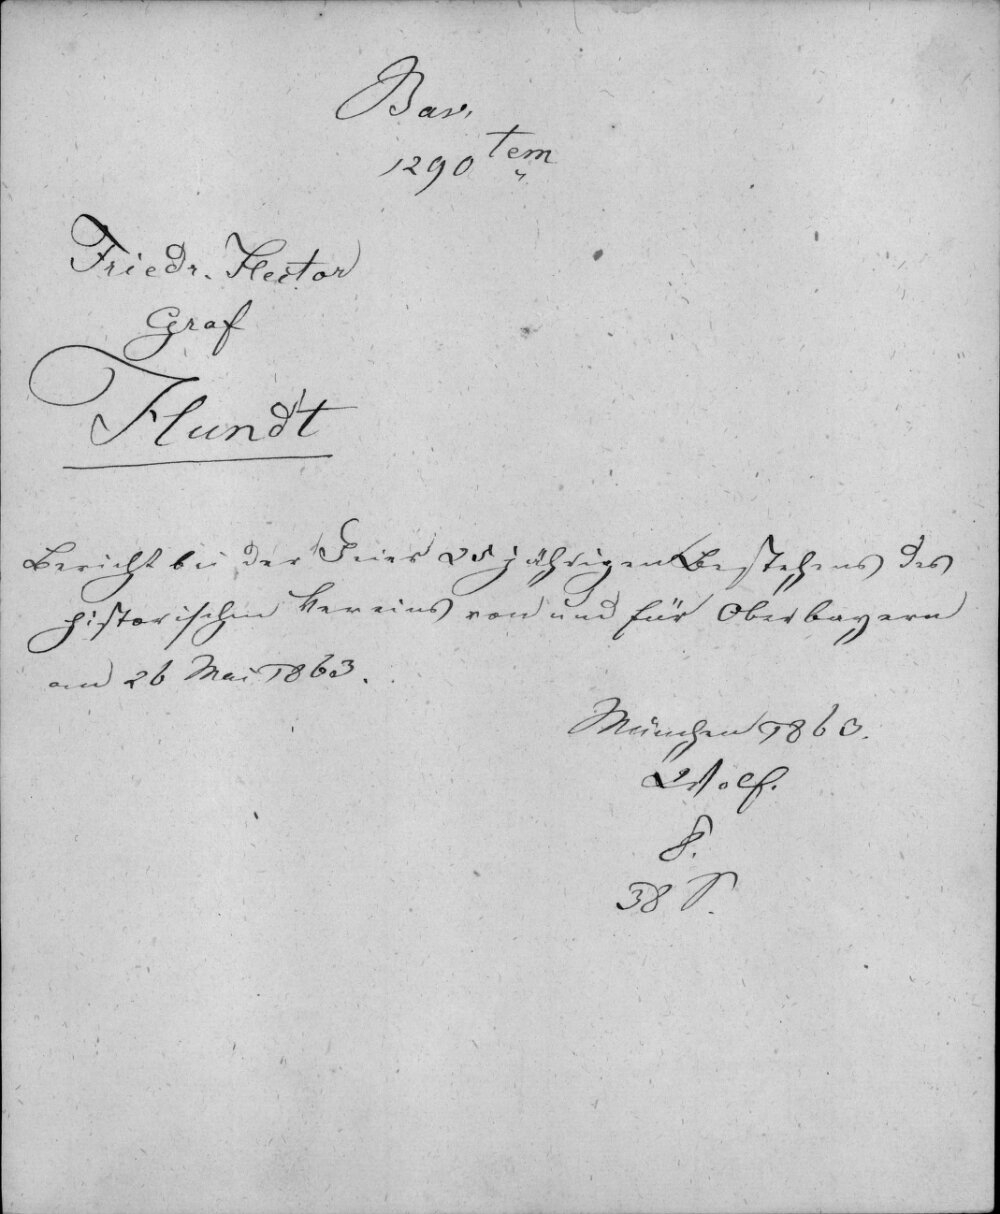 Bav.
1290 tem
Friedr. Hector
Graf
Hundt
Bericht bei der Feier 25jährigen Bestehens des
historischen Vereins von und für Oberbayern
am 26 Mai 1863.
München 1863.
Wolf.
8.
38 S.